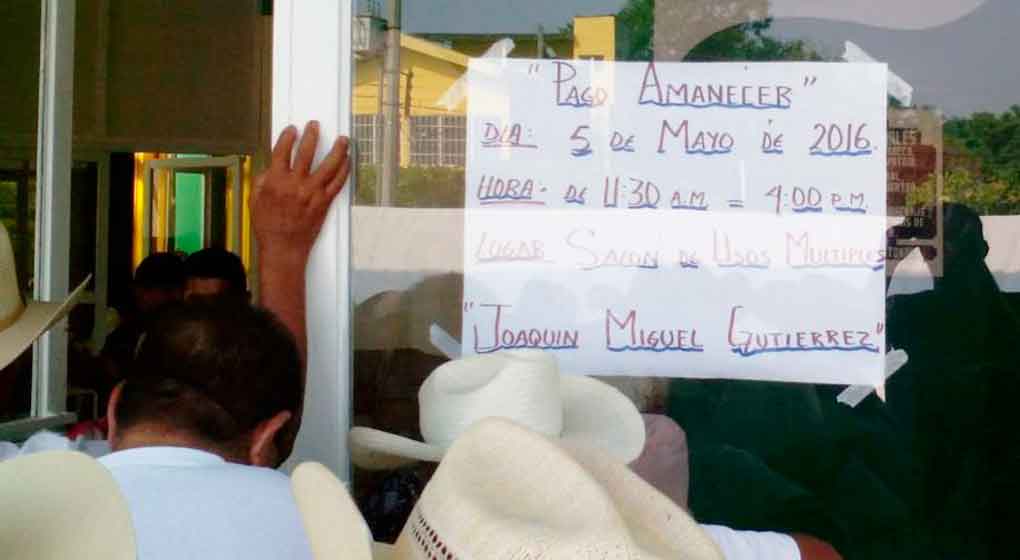 "PAGO AMANECER"
DIA: 5 DE MAYO DE 2016.
HORA- DE 11:30 A.M = 4:00 P.M.
LUGAR SALON DE USOS MULTIPLES
"JOAQUIN MIGUEL GUTIERREZ"